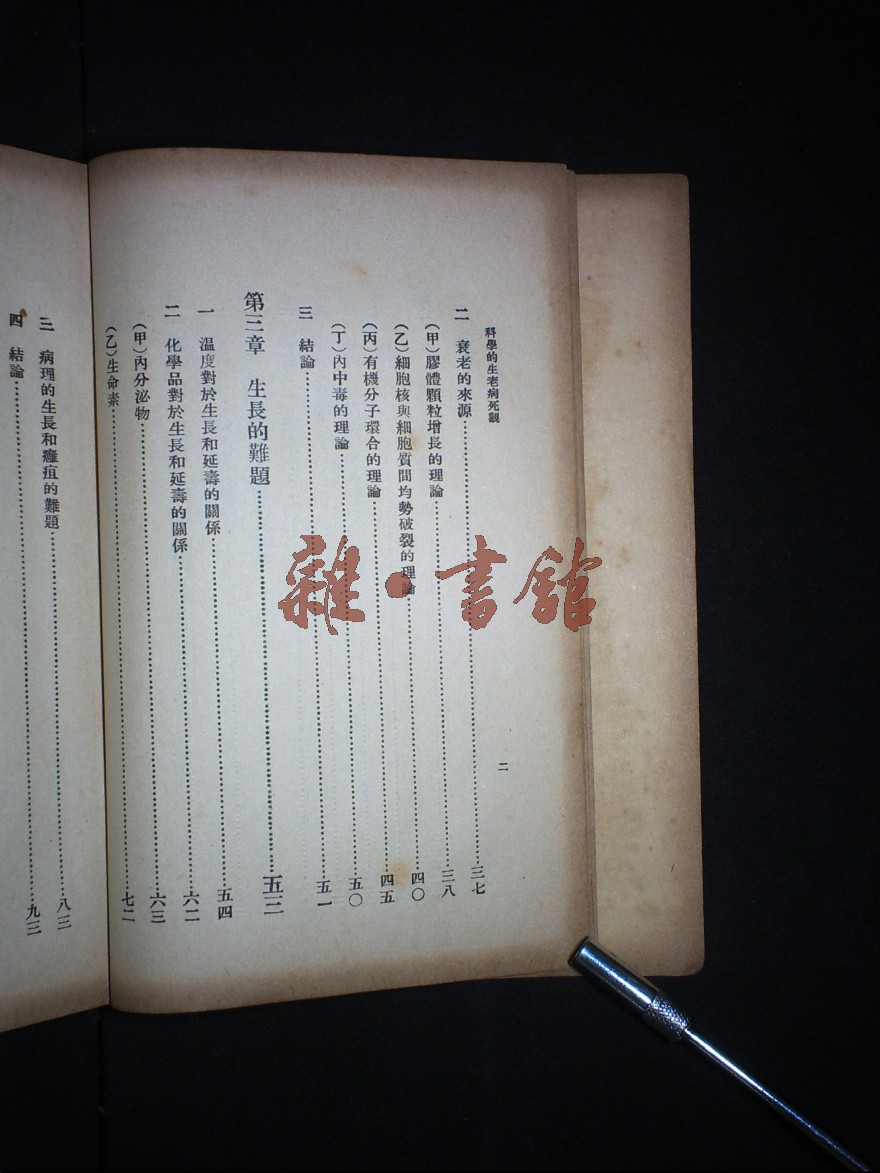 科學的生老病死觀
二
二 衰老的來源……三七
（甲）膠體顆粒增長的理論……三八
（乙）細胞核與細胞質間均勢破裂的理論……四〇
（丙）有機分子環合的理論……四五
（丁）內中毒的理論……五〇
三 結論……五一
第三章 生長的難題……五三
一 温度對於生長和延壽的關係……五四
二 化學品對於生長和延壽的關係……六二
（甲）內分泌物……六三
（乙）生命素……七二
三 病理的生長和癰疽的難題……八三
四 結論……九三
雜·書館